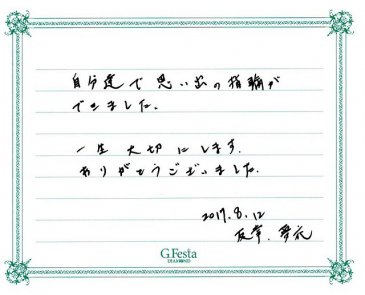 自分達で思い出の指輪が
できました。
一生大切にします。
ありがとうございました。
2017.8.12
G.Festa
DIAMOND